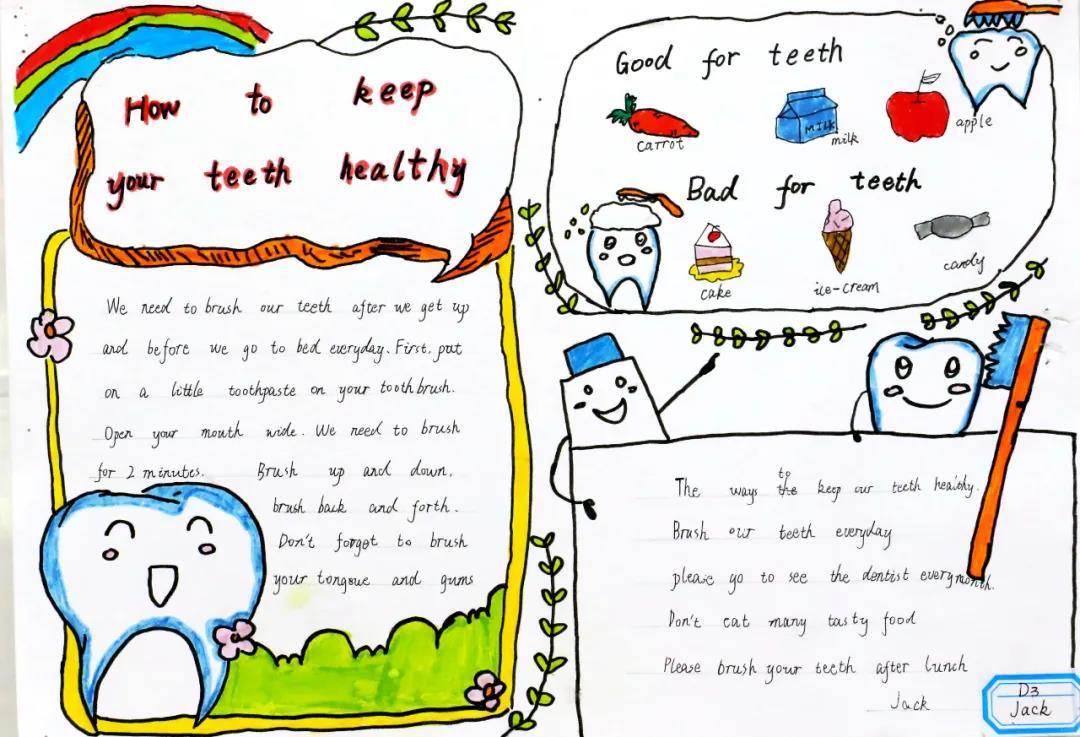 How to keep
your teeth healthy
We need to brush our teeth after we get up
and before we go to bed everyday. First, put
on a little toothpaste on your toothbrush.
Open your mouth wide. We need to brush
for 2 minutes. Brush up and down,
brush back and forth.
Don't forget to brush
your tongue and gums
Good for teeth
carrot
MILK
milk
apple
Bad for teeth
cake
ice-cream
candy
The ways to the keep our teeth healthy.
Brush our teeth everyday
please go to see the dentist every month.
Don't eat many tasty food
Please brush your teeth after lunch
Jack
D3
Jack